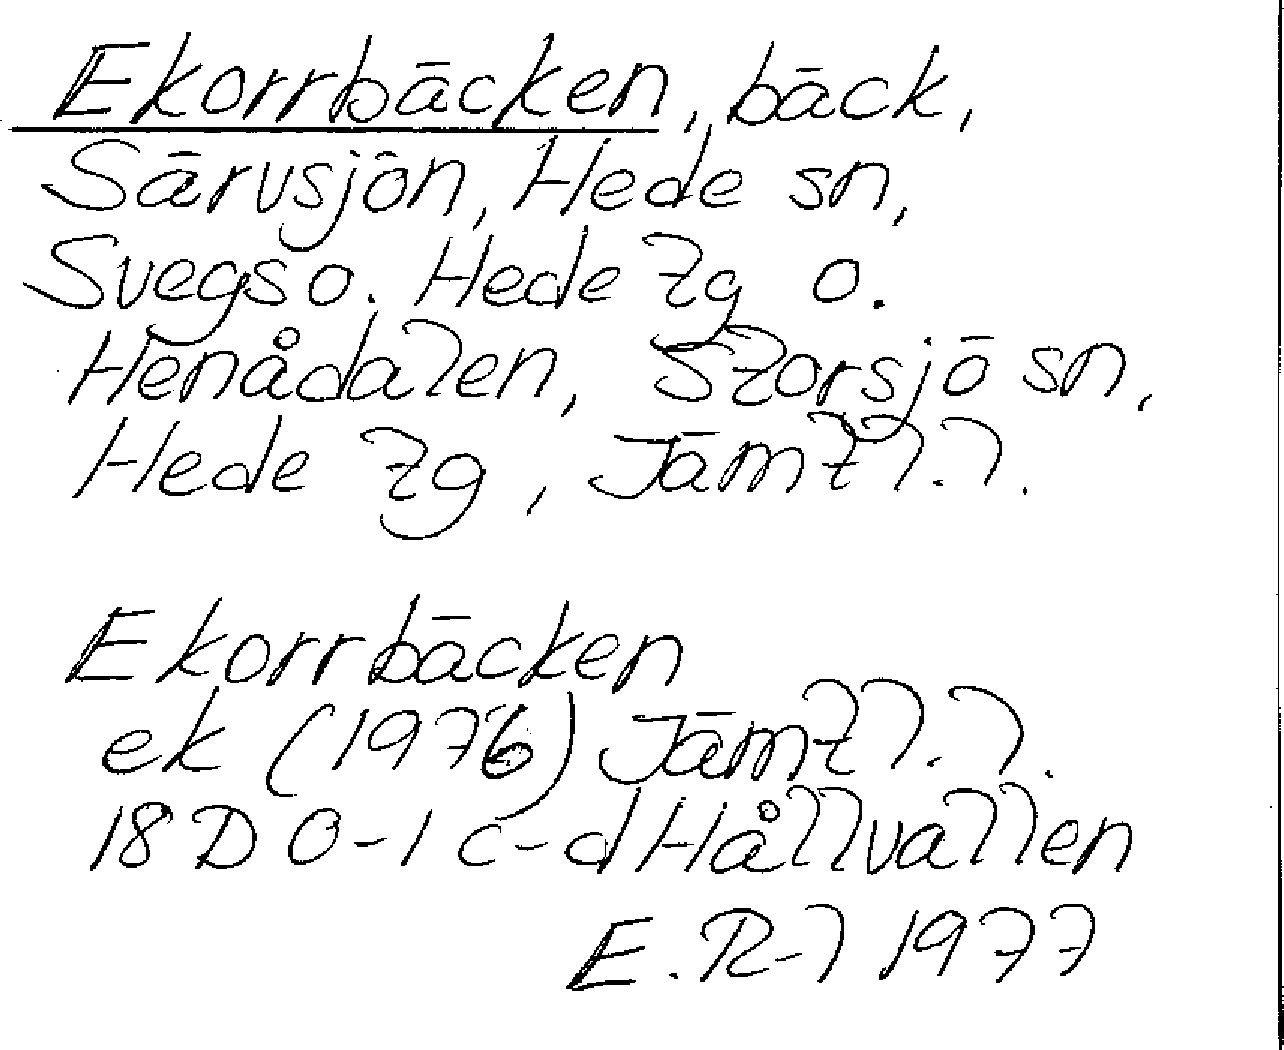 Ekorrbäcken, bäck,
Särvsjön, Hede sn,
Svegs o. Hede tg o.
Henådalen, Storsjö sn,
Hede tg, Jämtl. l.
Ekorrbäcken
ek (1976) Jämtl. l.
18D 0-1 c-d Hållvallen
E. R-l 1977